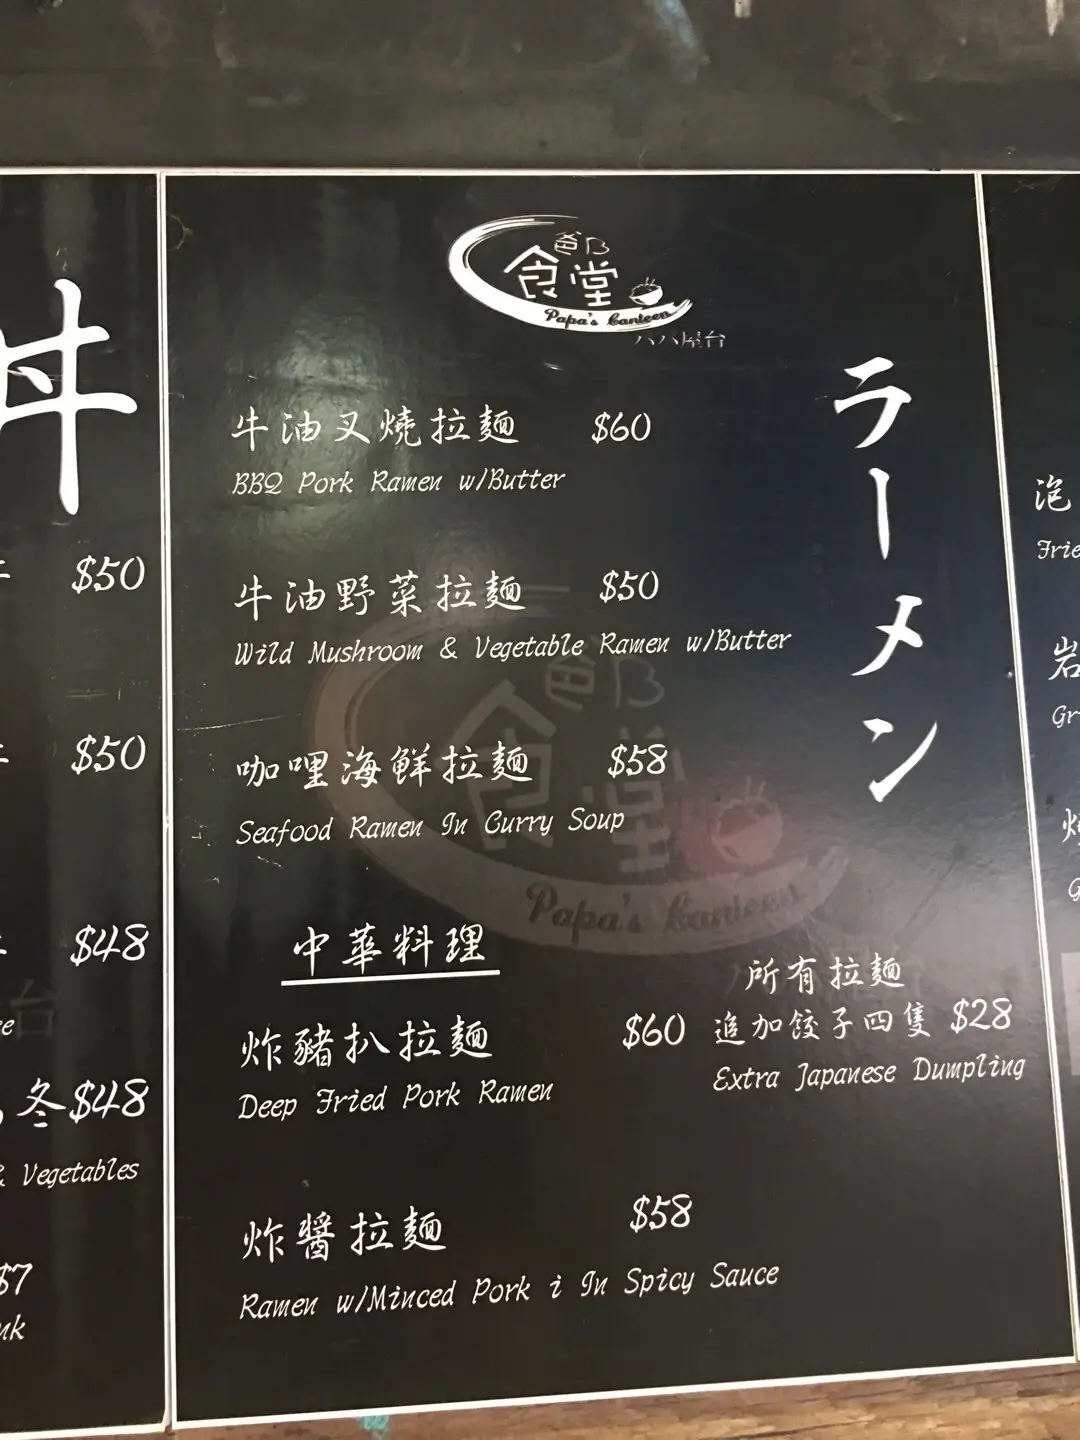 丼
$50
$50
$48
冬 $48
& Vegetables
$7
食堂
Papa's Canteen
八八屋台
ラーメン
牛油叉燒拉麵 $60
BBQ Pork Ramen w/Butter
牛油野菜拉麵 $50
Wild Mushroom & Vegetable Ramen w/Butter
咖哩海鮮拉麵 $58
Seafood Ramen In Curry Soup
食堂
Papa's Canteen
中華料理
炸豬扒拉麵 $60
Deep Fried Pork Ramen
所有拉麵
追加餃子四隻 $28
Extra Japanese Dumpling
炸醬拉麵 $58
Ramen w/Minced Pork i In Spicy Sauce
泡
岩